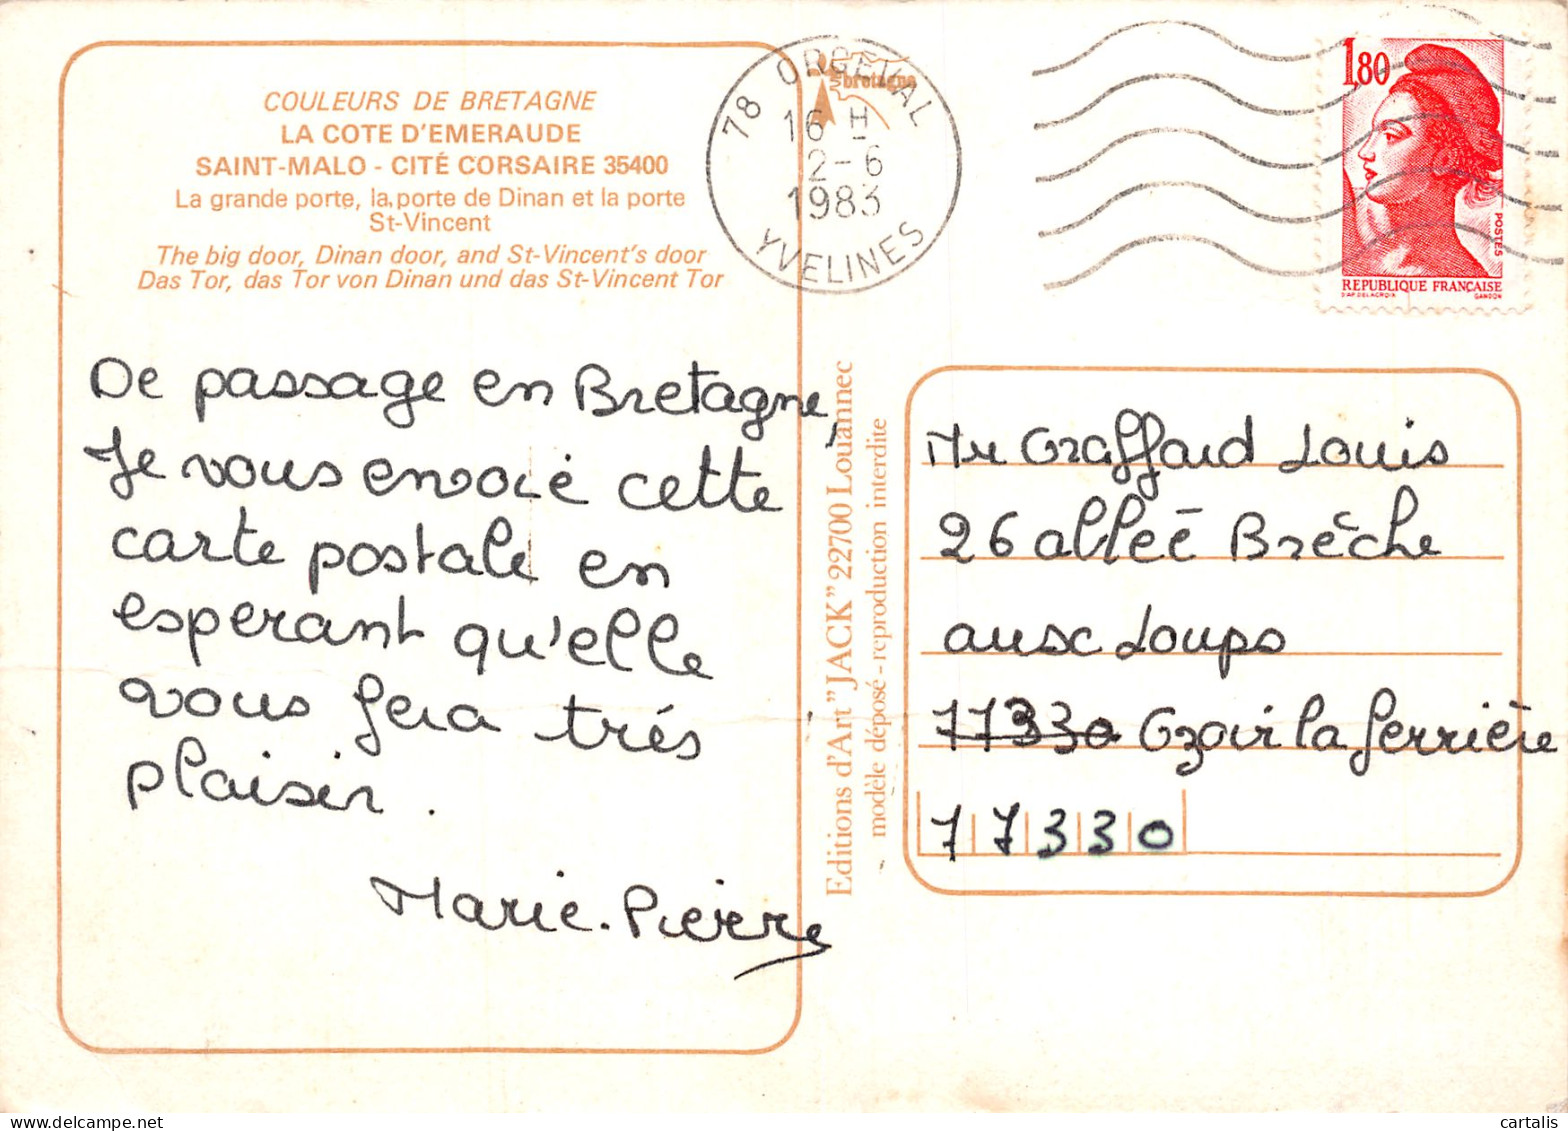 COULEURS DE BRETAGNE
LA COTE D'EMERAUDE
SAINT-MALO - CITÉ CORSAIRE 35400
La grande porte, la porte de Dinan et la porte
St-Vincent
The big door, Dinan door, and St-Vincent's door
Das Tor, das Tor von Dinan und das St-Vincent Tor
De passage en Bretagne,
Je vous envoie cette
carte postale en
esperant qu'elle
vous fera trés
plaisir.
Marie-Pierre
bretagne
78 ORGEVAL
16 H
2-6
1983
YVELINES
1,80
POSTES
REPUBLIQUE FRANÇAISE
D'AP. DELACROIX GANDON
Editions d'Art "JACK" 22700 Louannec
modèle déposé - reproduction interdite
Mr Graffard Louis
26 allée Brèche
aux Loups
77330 Ozoir la ferrière
77330
cartalis